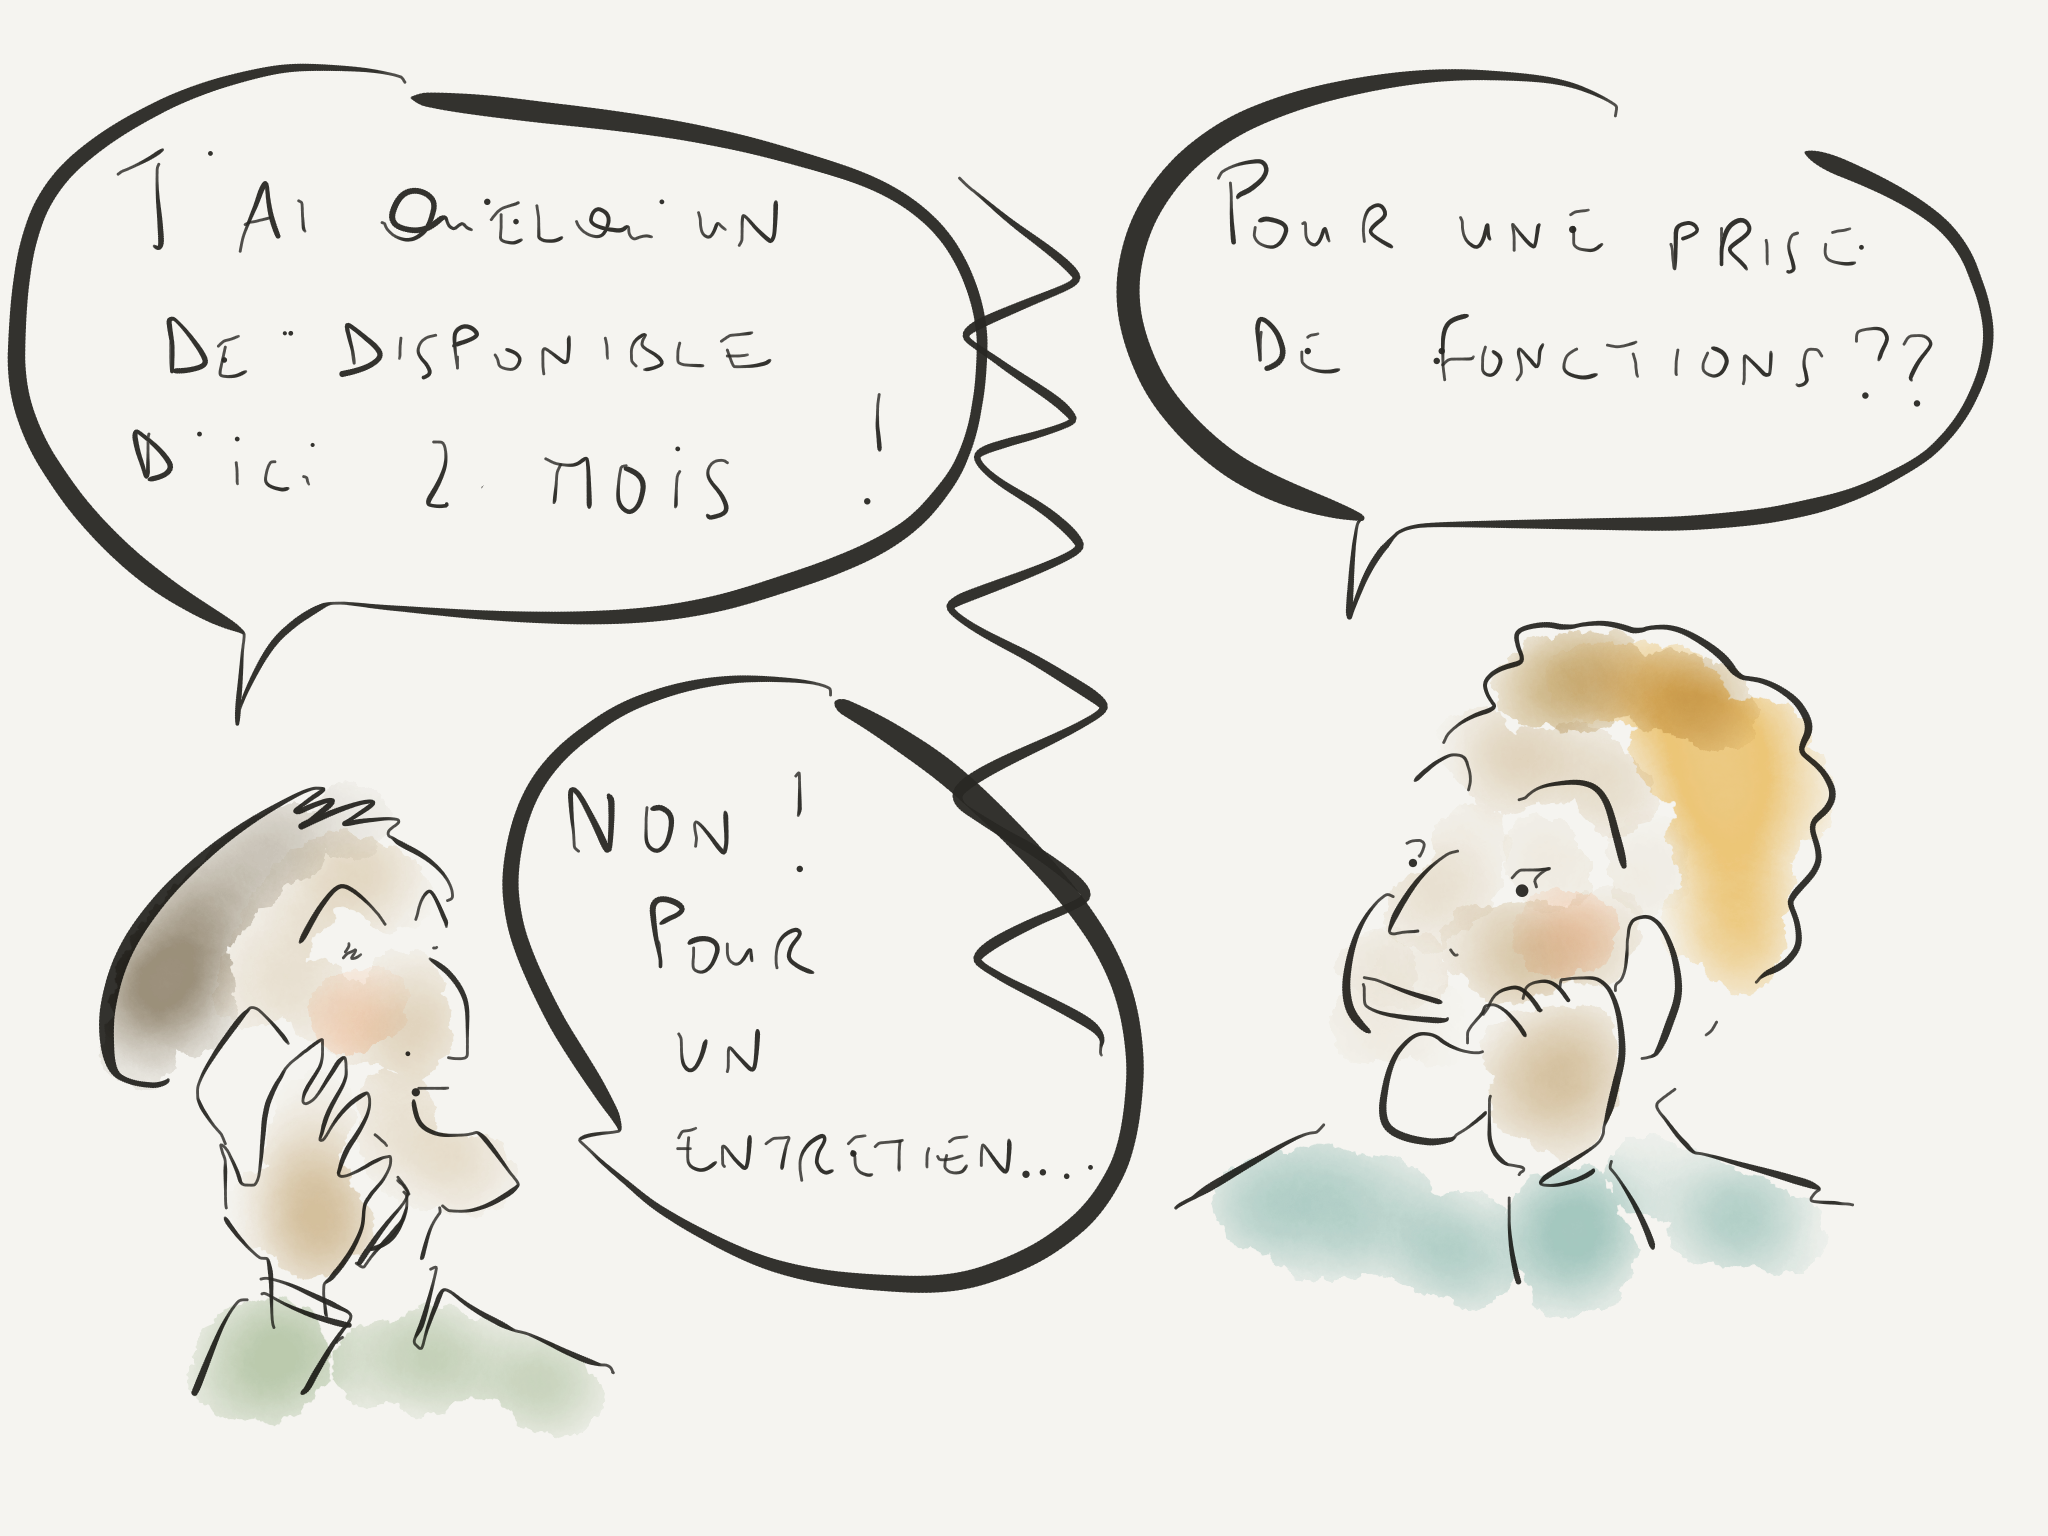 J'AI QUELQU'UN
DE DISPONIBLE
D'ici 2 MOIS !
POUR UNE PRISE
DE FONCTIONS ??
NON !
POUR
UN
ENTRETIEN....